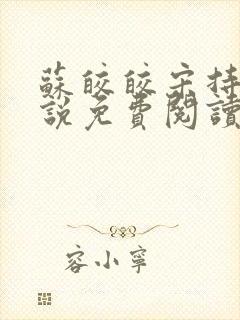 蘇皎皎宋持
說免費閱讀
容小寧